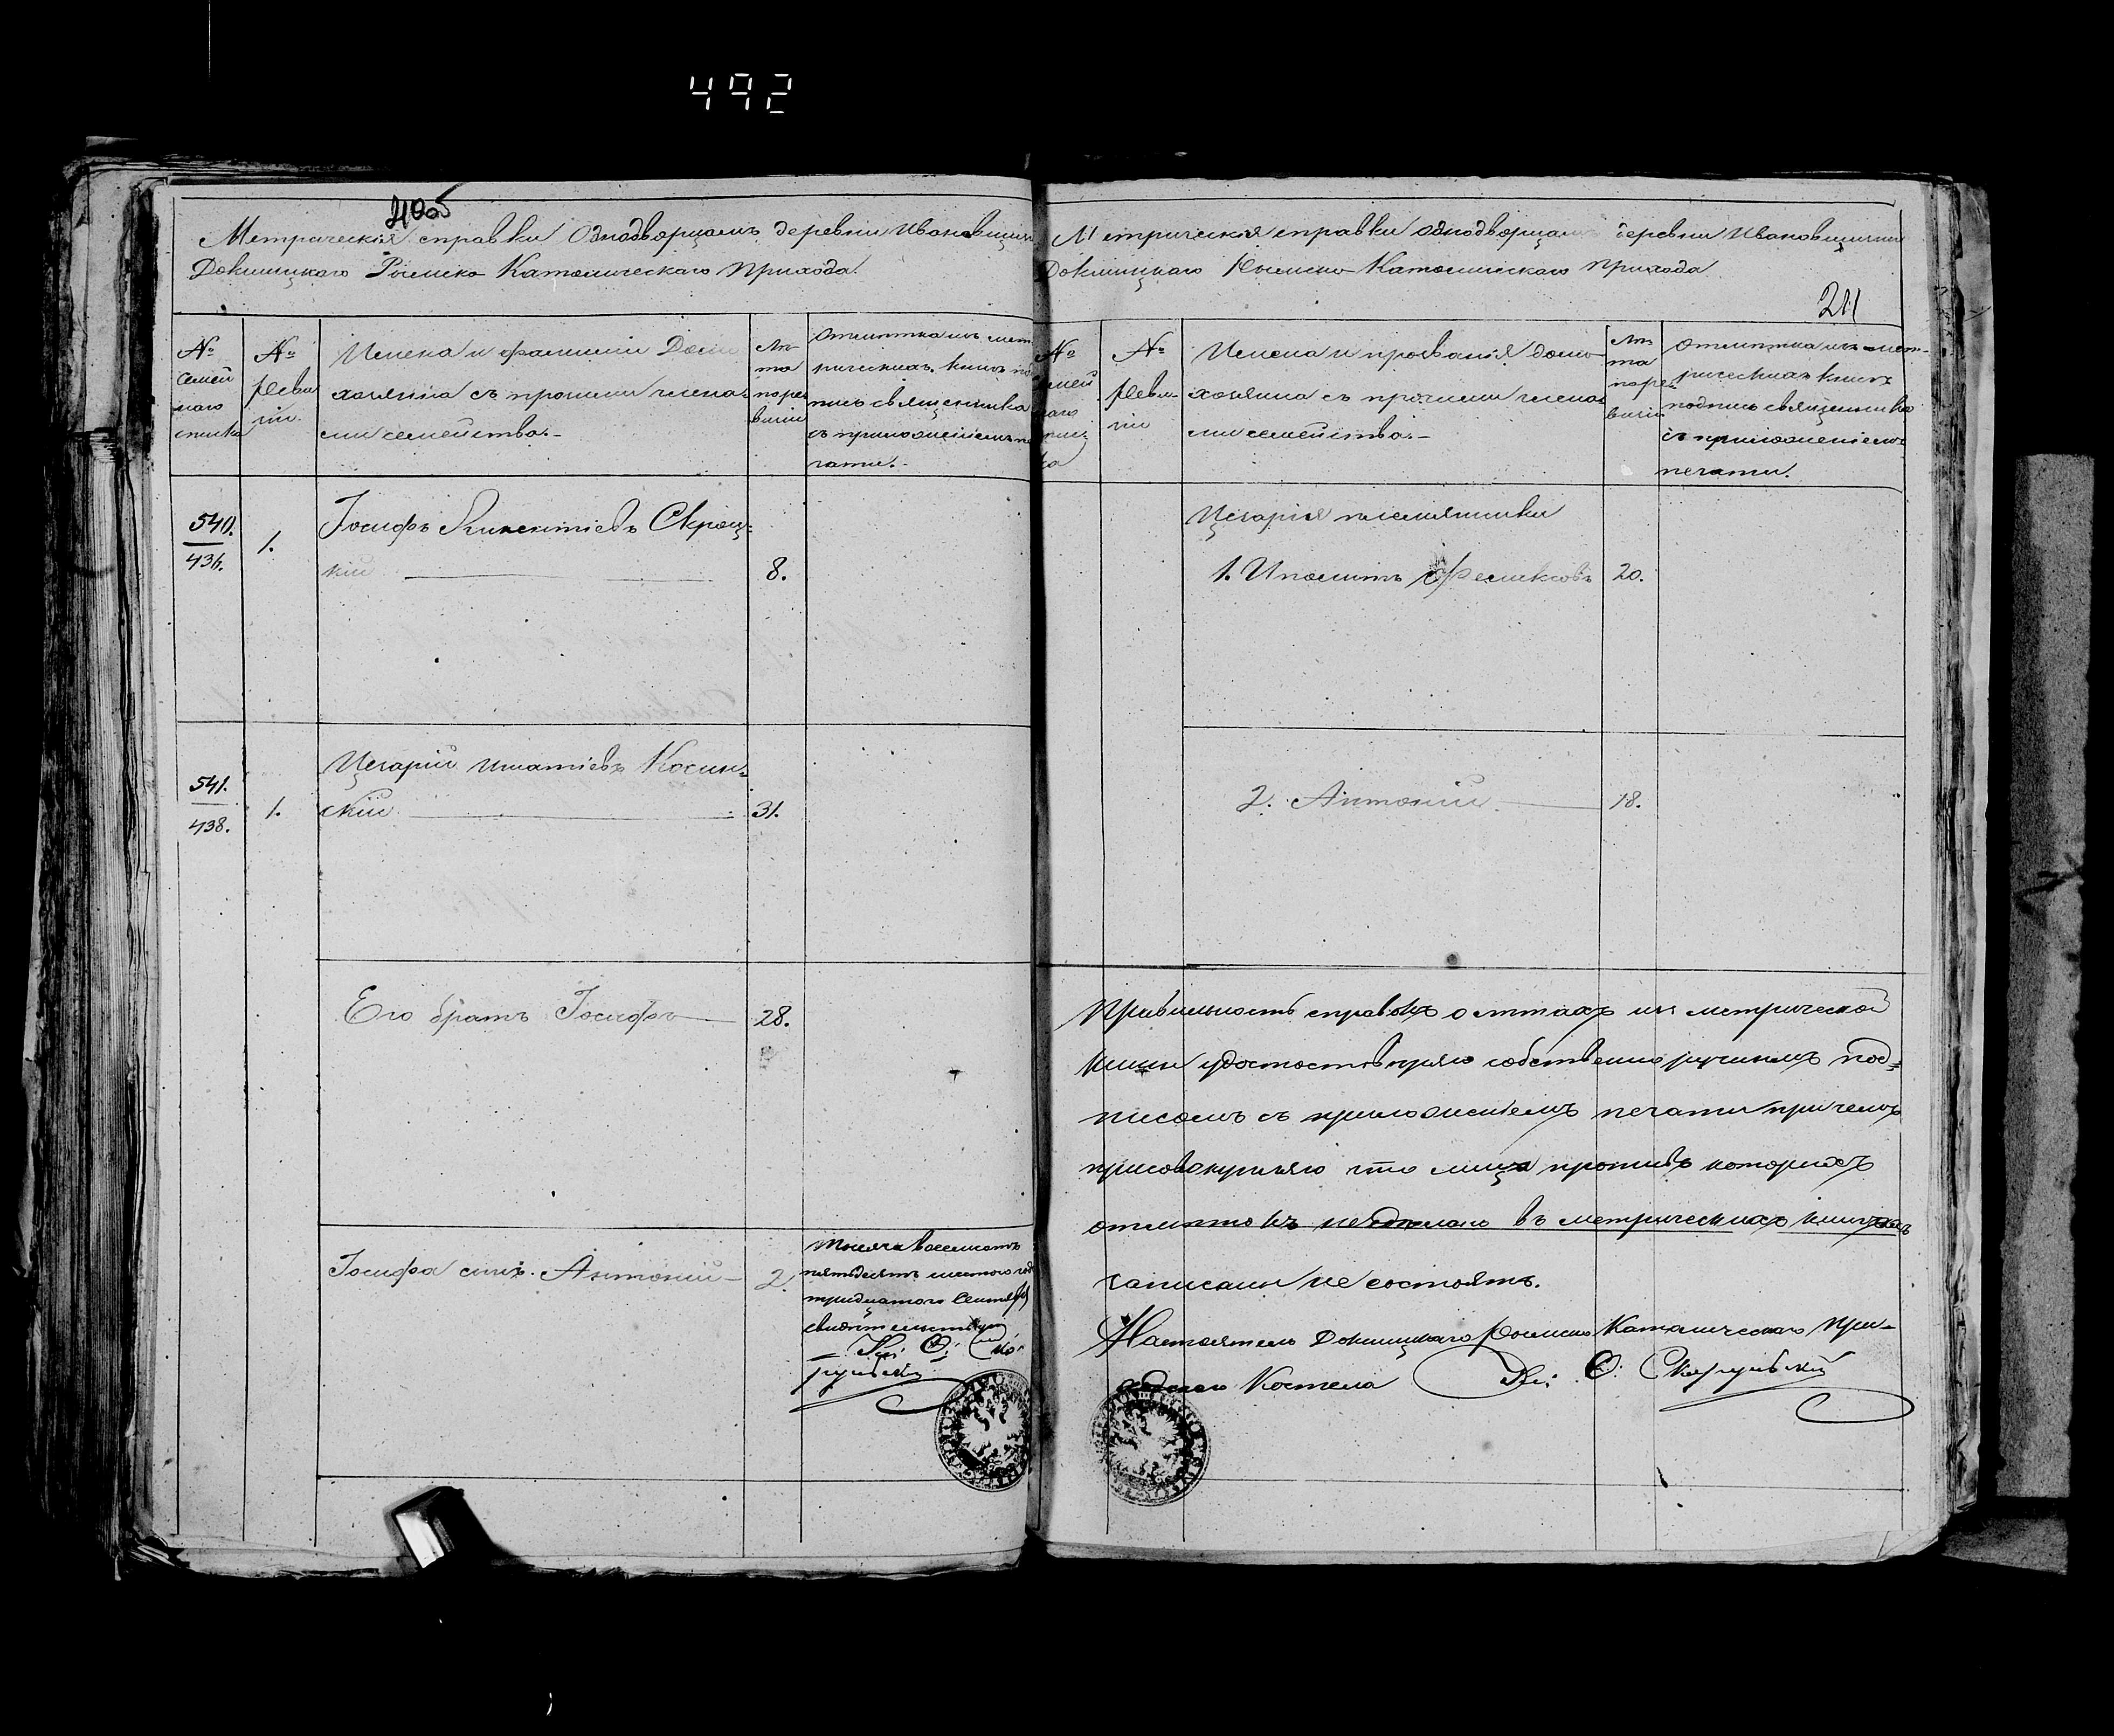 492
Метрическія справки Однодворцамъ деревни Ивановщини
Докшицкого Римско Католическаго Прихода.
№ семей наго списка
№ Ревизіи
Имена и фамиліи Домохозяина съ прочими членами семейства.
Лѣта по ревизіи
Отмѣтка изъ метрическихъ книгъ подпись священника съ приложеніемъ печати.
540.
436.
1.
Іосифъ Викентіевъ Скроц-
кій
8.
541.
438.
1.
Цезарій Игнатіевъ Косин-
скій
31.
Его братъ Іосифъ
28.
Іосифа сынъ Антоній
2.
тысяча восемсотъ
пятьдесятъ шестого год
тридцатого Сентября
свидѣтельствую
Кс: О: Ско-
рульскій
Метрическія справки однодворцамъ деревни Ивановщины
Докшицкаго Римско-Католическаго прихода
211
№
№ Ревизіи
Имена и прозванія домо-
хозяина съ прочими члена
ми семейства.
Лѣта по ревизіи
Отмѣтка изъ мет-
рическихъ книгъ
подпись священника
съ приложеніемъ
печати.
Цезарія племянники
1. Иполитъ Феликсовъ
20.
2. Антоній
18.
Правильность справокъ о лѣтахъ изъ метрической
книги удостовѣряю собственноручнымъ под-
писомъ съ приложеніемъ печати причемъ
присовокупляю что лица противъ которыхъ
отмѣтокъ не сдѣлано въ метрическихъ книгахъ
записаны не состоятъ.
Настоятель Докшицкаго Римско Католическаго При-
ходскаго Костела Кс: О: Скорульскій